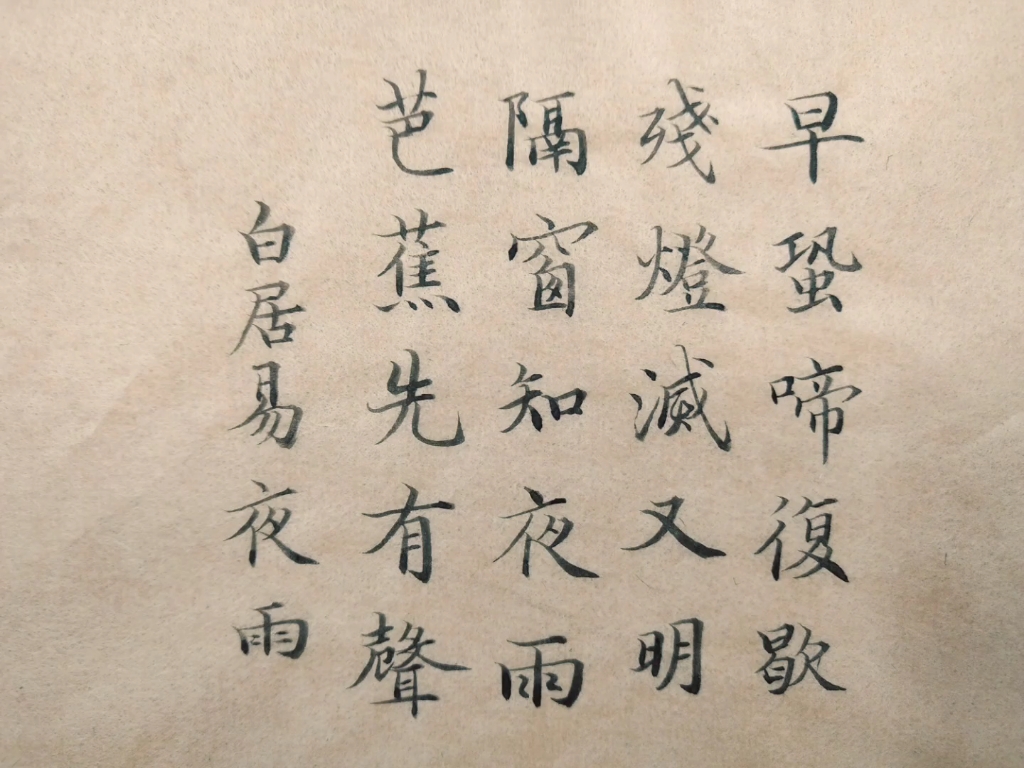 早蛩啼復歇
殘燈滅又明
隔窗知夜雨
芭蕉先有聲
白居易夜雨